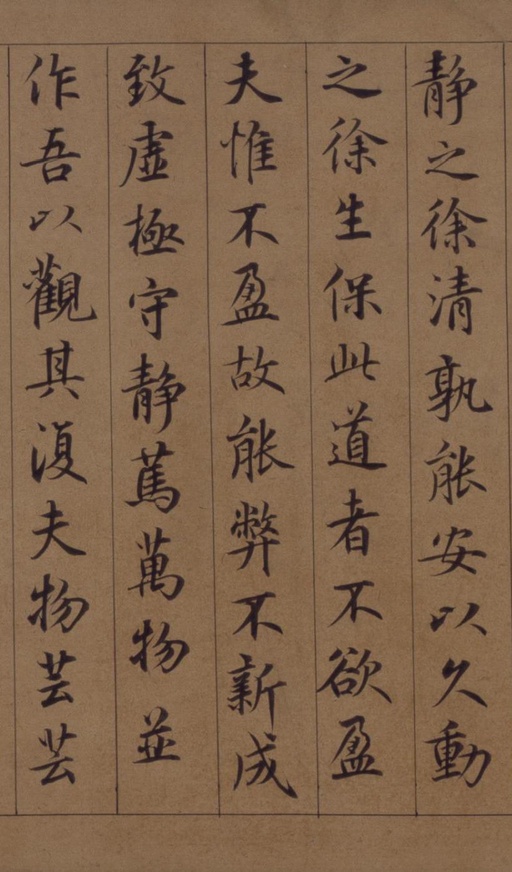 静之徐清孰能安以久動
之徐生保此道者不欲盈
夫惟不盈故能弊不新成
致虛極守静篤萬物並
作吾以觀其復夫物芸芸